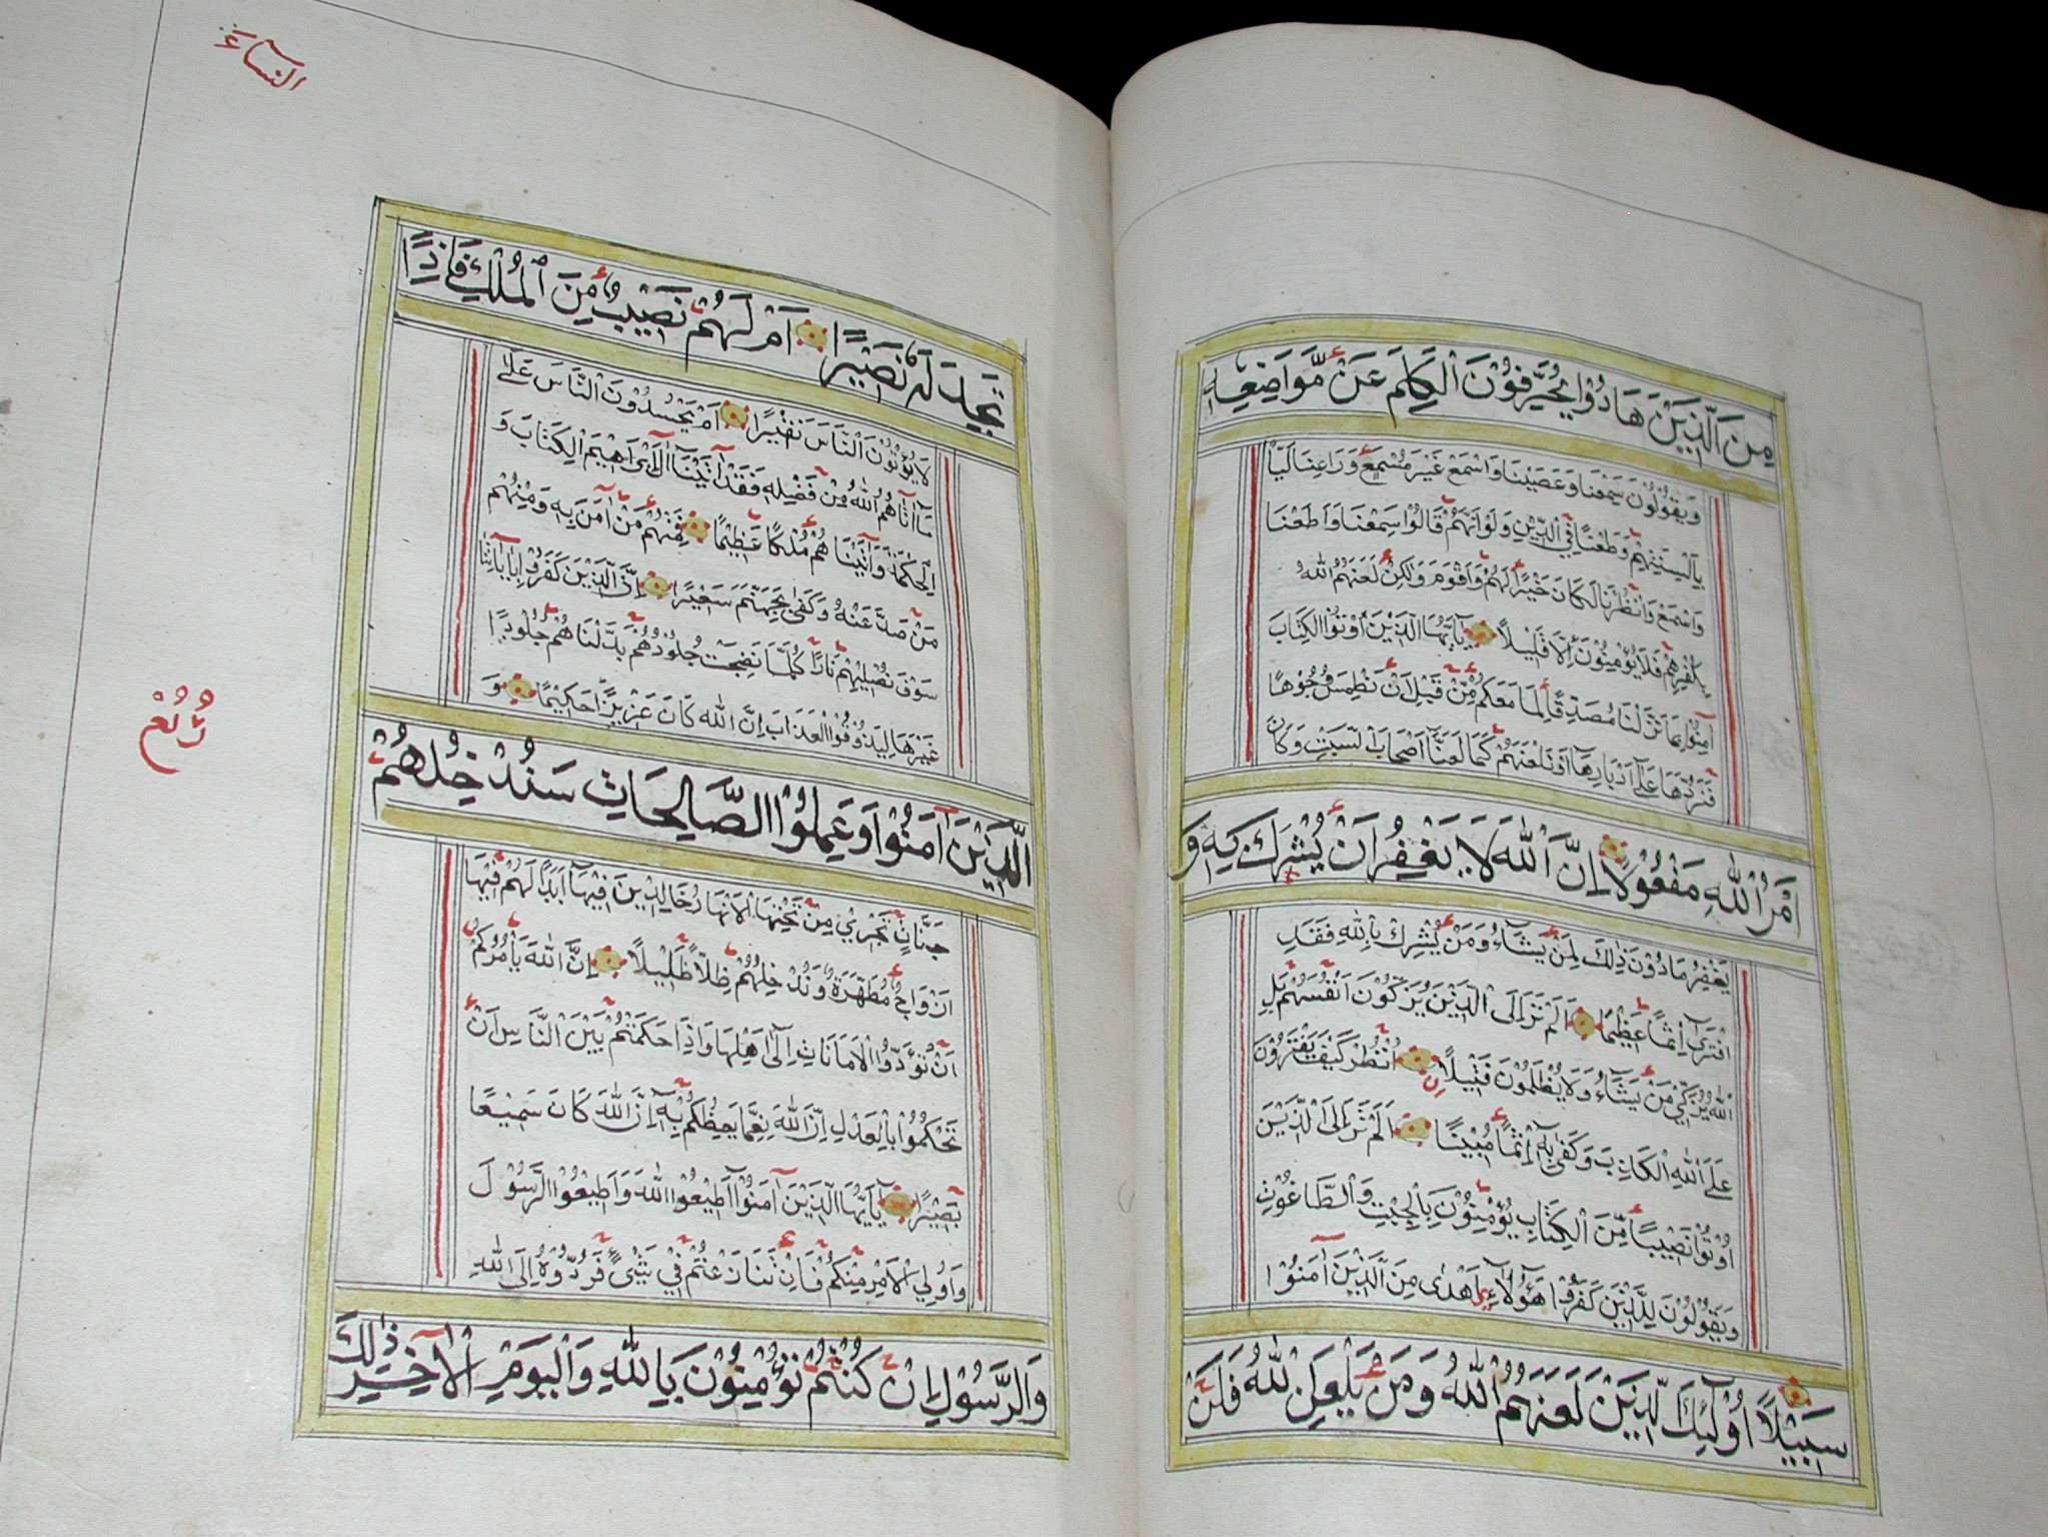 مِنَ الَّذِيْنَ هَادُوْا يُحَرِّفُوْنَ الْكَلِمَ عَنْ مَّوَاضِعِهِ
وَيَقُوْلُوْنَ سَمِعْنَا وَعَصَيْنَا وَاسْمَعْ غَيْرَ مُسْمَعٍ وَرَاعِنَا لَيًّا
بِاَلْسِنَتِهِمْ وَطَعْنًا فِي الدِّيْنِ وَلَوْ اَنَّهُمْ قَالُوْا سَمِعْنَا وَاَطَعْنَا
وَاسْمَعْ وَانْظُرْنَا لَكَانَ خَيْرًا لَهُمْ وَاَقْوَمَ وَلٰكِنْ لَعَنَهُمُ اللّٰهُ
بِكُفْرِهِمْ فَلَا يُؤْمِنُوْنَ اِلَّا قَلِيْلًا يَآ اَيُّهَا الَّذِيْنَ اُوْتُوا الْكِتَابَ
آمِنُوْا بِمَا نَزَّلْنَا مُصَدِّقًا لِمَا مَعَكُمْ مِّنْ قَبْلِ اَنْ نَطْمِسَ وُجُوْهًا
فَنَرُدَّهَا عَلٰٓى اَدْبَارِهَآ اَوْ نَلْعَنَهُمْ كَمَا لَعَنَّآ اَصْحَابَ السَّبْتِ وَكَانَ
اَمْرُ اللّٰهِ مَفْعُوْلًا اِنَّ اللّٰهَ لَا يَغْفِرُ اَنْ يُشْرَكَ بِهِ وَ
يَغْفِرُ مَا دُوْنَ ذٰلِكَ لِمَنْ يَشَآءُ وَمَنْ يُشْرِكْ بِاللّٰهِ فَقَدِ
افْتَرٰٓى اِثْمًا عَظِيْمًا اَلَمْ تَرَ اِلَى الَّذِيْنَ يُزَكُّوْنَ اَنْفُسَهُمْ بَلِ
اللّٰهُ يُزَكِّيْ مَنْ يَشَآءُ وَلَا يُظْلَمُوْنَ فَتِيْلًا اُنْظُرْ كَيْفَ يَفْتَرُوْنَ
عَلَى اللّٰهِ الْكَاذِبَ وَكَفٰى بِهٖٓ اِثْمًا مُبِيْنًا اَلَمْ تَرَ اِلَى الَّذِيْنَ
اُوْتُوْا نَصِيْبًا مِّنَ الْكِتَابِ يُؤْمِنُوْنَ بِالْجِبْتِ وَالطَّاغُوْتِ
وَيَقُوْلُوْنَ لِلَّذِيْنَ كَفَرُوْا هٰٓؤُلَآءِ اَهْدٰى مِنَ الَّذِيْنَ آمَنُوْا
سَبِيْلًا اُوْلٰٓئِكَ الَّذِيْنَ لَعَنَهُمُ اللّٰهُ وَمَنْ يَلْعَنِ اللّٰهُ فَلَنْ
النساء
تَجِدَ لَهُ نَصِيْرًا اَمْ لَهُمْ نَصِيْبٌ مِّنَ الْمُلْكِ فَاِذًا
لَا يُؤْتُوْنَ النَّاسَ نَقِيْرًا اَمْ يَحْسُدُوْنَ النَّاسَ عَلٰى
مَآ اٰتَاهُمُ اللّٰهُ مِنْ فَضْلِهٖ فَقَدْ اٰتَيْنَآ اٰلَ اِبْرَاهِيْمَ الْكِتَابَ وَ
الْحِكْمَةَ وَاٰتَيْنَاهُمْ مُلْكًا عَظِيْمًا فَمِنْهُمْ مَنْ اٰمَنَ بِهٖ وَمِنْهُمْ
مَنْ صَدَّ عَنْهُ وَكَفٰى بِجَهَنَّمَ سَعِيْرًا اِنَّ الَّذِيْنَ كَفَرُوْا بِاٰيَاتِنَا
سَوْفَ نُصْلِيْهِمْ نَارًا كُلَّمَا نَضِجَتْ جُلُوْدُهُمْ بَدَّلْنَاهُمْ جُلُوْدًا
غَيْرَهَا لِيَذُوْقُوا الْعَذَابَ اِنَّ اللّٰهَ كَانَ عَزِيْزًا حَكِيْمًا وَ
الَّذِيْنَ اٰمَنُوْا وَعَمِلُوا الصَّالِحَاتِ سَنُدْخِلُهُمْ
جَنَّاتٍ تَجْرِيْ مِنْ تَحْتِهَا الْاَنْهَارُ خَالِدِيْنَ فِيْهَآ اَبَدًا لَهُمْ فِيْهَا
اَزْوَاجٌ مُطَهَّرَةٌ وَنُدْخِلُهُمْ ظِلًّا ظَلِيْلًا اِنَّ اللّٰهَ يَأْمُرُكُمْ
اَنْ تُؤَدُّوا الْاَمَانَاتِ اِلٰٓى اَهْلِهَا وَاِذَا حَكَمْتُمْ بَيْنَ النَّاسِ اَنْ
تَحْكُمُوْا بِالْعَدْلِ اِنَّ اللّٰهَ نِعِمَّا يَعِظُكُمْ بِهٖٓ اِنَّ اللّٰهَ كَانَ سَمِيْعًا
بَصِيْرًا يَآ اَيُّهَا الَّذِيْنَ اٰمَنُوْٓا اَطِيْعُوا اللّٰهَ وَاَطِيْعُوا الرَّسُوْلَ
وَاُولِي الْاَمْرِ مِنْكُمْ فَاِنْ تَنَازَعْتُمْ فِيْ شَيْءٍ فَرُدُّوْهُ اِلَى اللّٰهِ
وَالرَّسُوْلِ اِنْ كُنْتُمْ تُؤْمِنُوْنَ بِاللّٰهِ وَالْيَوْمِ الْاٰخِرِ ذٰلِكَ